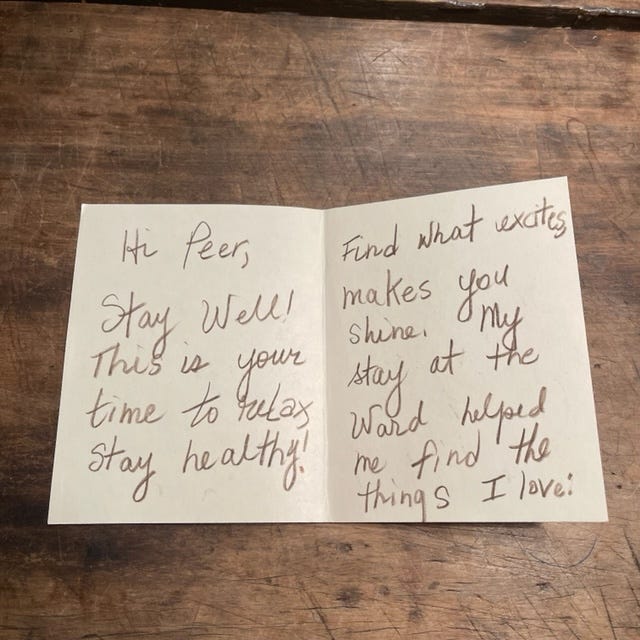 Hi Peer,
Stay Well!
This is your
time to relax
stay healthy!
Find what excites,
makes you
shine. My
stay at the
Ward helped
me find the
things I love!